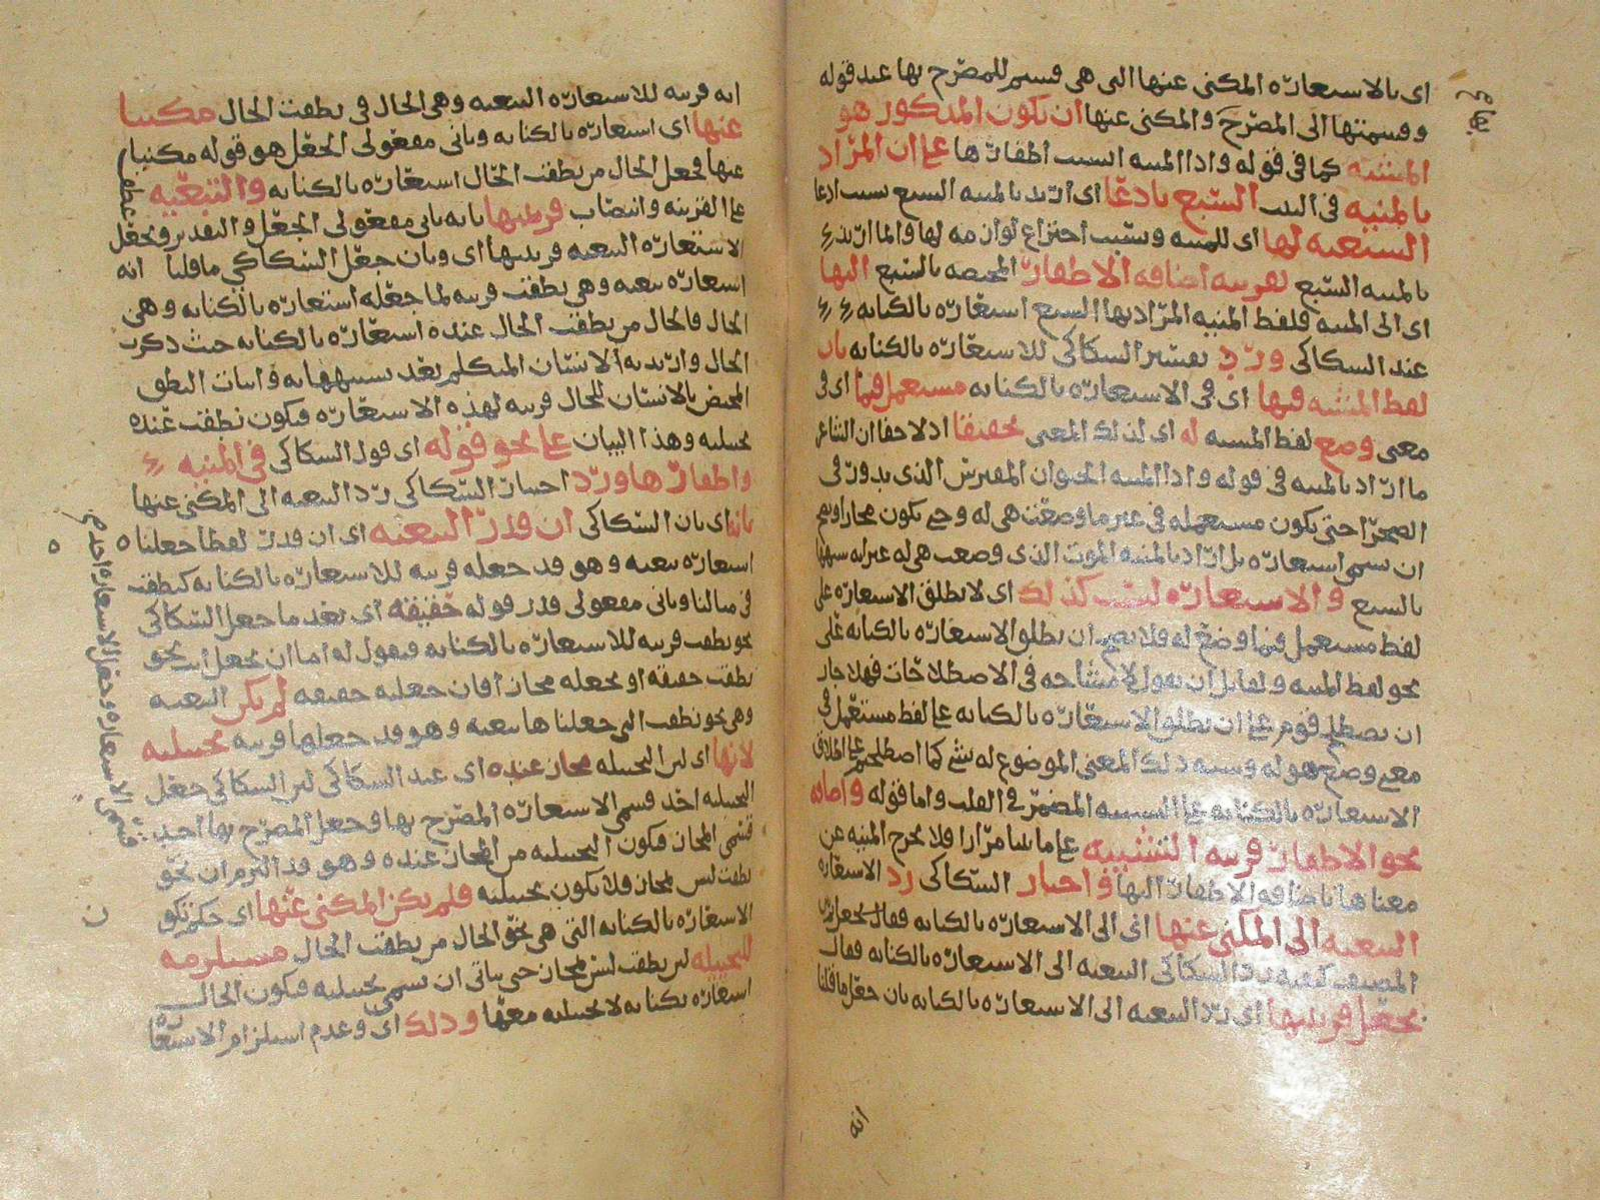 اى بالاستعارة المكنى عنها التى هى قسيم للمصرح بها عند قوله
وقسمتها الى المصرح والمكنى عنها ان يكون المذكور هو
المشبه كما فى قوله واذا المنية انشبت اظفارها على ان المراد
بالمنية فى البيت السبع بادعا اى اريد بالمنية السبع بسبب ادعا
السبعية لها اى للمنية وبسبب اختراع لوازمه لها وانما اريد
بالمنية السبع بقرينة اضافة الاظفار المختصة بالسبع اليها
اى الى المنية فلفظ المنية المراد بها السبع استعارة بالكناية
عند السكاكى ورد تفسير السكاكى للاستعارة بالكناية بان
لفظ المشبه فيها اى فى الاستعارة بالكناية مستعمل فيما اى فى
معنى وضع لفظ المشبه له اى لذلك المعنى تحقيقا اذ لا خفا ان الشاعر
ما اراد بالمنية فى قوله واذا المنية الحيوان المفترس الذى يدور فى
الصحرا حتى يكون مستعمله فى غير ما وضعت هى له وحتى يكون مجازا ويصح
ان تسمى استعارة بل اراد بالمنية الموت الذى وضعت هى له غير انه شبهها
بالسبع والاستعارة ليست كذلك اى لا يطلق الاستعارة على
لفظ مستعمل فيما وضع له فلا يصح ان يطلق الاستعارة بالكناية على
نحو لفظ المنية ولقايل ان يقول لا مشاحه فى الاصطلاحات فهلا جاز
ان يصطلح قوم على ان يطلق الاستعارة بالكناية على لفظ مستعمل فى
معنى وضع هو له وشبه ذلك المعنى الموضوع له بشى كما اصطلحتم على اطلاق
الاستعارة بالكناية على التشبيه المضمر فى القلب واما قوله واضافة
نحو الاظفار قرينة التشبيه على ما مرارا فلا يخرج المنية عن
معناها باضافة الاظفار اليها واختار السكاكى رد الاستعارة
التبعية الى المكنى عنها اى الى الاستعارة بالكناية فقال
المصنف كيفية رد السكاكى التبعية الى الاستعارة بالكناية فقال
بجعل قرينتها اى رد التبعية الى الاستعارة بالكناية بان جعل ما قلنا
انه
انه قرينة للاستعارة التبعية وهى الحال فى نطقت الحال مكنيا
عنها اى استعارة بالكناية وثانى مفعولى الجعل هو قوله مكنيا
عنها فجعل الحال من نطقت الحال استعارة بالكناية والتبعية
على القرينة وانتصاب قرينتها بانه ثانى مفعولى الجعل والتقدير وبجعل
الاستعارة التبعية قرينتها اى وبان جعل السكاكى ما قلنا انه
استعارة تبعية وهى نطقت قرينة لما جعله استعارة بالكناية وهى
الحال فالحال من نطقت الحال عنده استعارة بالكناية حيث ذكرت
الحال واريد به الانسان المتكلم بعد تشبيهها به واثبات النطق
المختص بالانسان للحال قرينة لهذه الاستعارة فيكون نطقت عنده
تخييلية وهذا البيان على نحو قوله اى قول السكاكى فى المنية
واظفارها ورد اختيار السكاكى رد التبعية الى المكنى عنها
بانه اى بان السكاكى ان قدر التبعية اى ان قدر لفظا جعلنا
استعارة تبعية وهو قد جعله قرينة للاستعارة بالكناية كنطقت
فى مثالنا وثانى مفعولى قدر قوله حقيقة اى بعد ما جعل السكاكى
نحو نطقت قرينة للاستعارة بالكناية فنقول له اما ان يجعل نحو
نطقت حقيقة او يجعله مجازا فان جعلته حقيقة لم يكن التبعية
وهى نحو نطقت التى جعلناها تبعية وهو قد جعلها قرينة تخييلية
لانها اى لان التخييلية مجاز عنده اى عند السكاكى لان السكاكى جعل
التخييلية احد قسمى الاستعارة المصرح بها وجعل المصرح بها احد
قسمى المجاز فيكون التخييلية من المجاز عنده وهو قد التزم ان نحو
نطقت ليس مجاز فلا يكون تخييلية فلم يكن المكنى عنها اى
الاستعارة بالكناية التى هى نحو الحال من نطقت الحال مستلزمة
للتخييلية لان نطقت ليس مجاز حتى يتاتى ان تسمى تخييلية فيكون الحال
استعارة بكناية لا تخييلية معها وذلك اى وعدم استلزام الاستعا